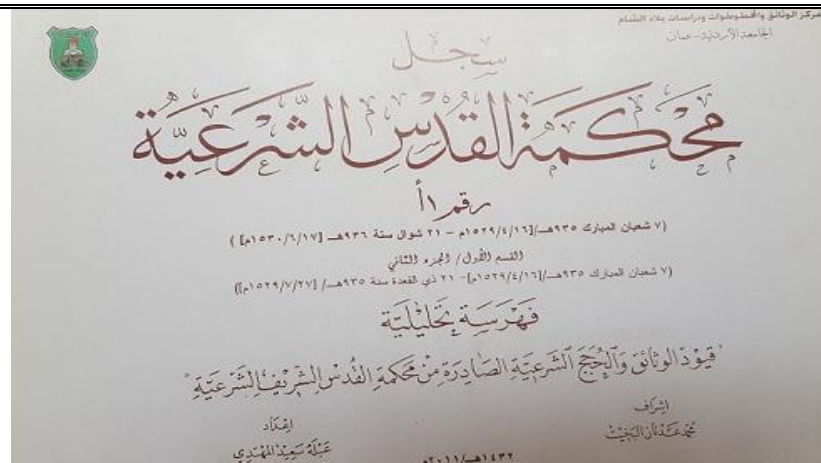 مركز الوثائق والمخطوطات ودراسات بلاد الشام
الجامعة الأردنية - عمان
سجل
محكمة القدس الشرعية
رقم ١أ
(٧ شعبان المبارك ٩٣٥هـ/[١٥٢٩/٤/١٦م - ٢١ شوال سنة ٩٣٦هـ [١٥٣٠/٦/١٧م] )
القسم الأول / الجزء الثاني
(٧ شعبان المبارك ٩٣٥هـ/[١٥٢٩/٤/١٦م]- ٢١ ذي القعدة سنة ٩٣٥هـ/ [١٥٢٩/٧/٢٧م])
فَهْرَسَة تَحْلِيلِيَّة
قيُودْ الوثَائق وَالْحُجَج الشَّرعِيَّة الصَّادِرَة مِنْ مَحكمَة القُدس الشَّريف الشَّرعيَّة
إشراف
محمد عدنان البخيت
إعداد
عبلة سعيد المهتدي
١٤٣٢هـ/٢٠١١م